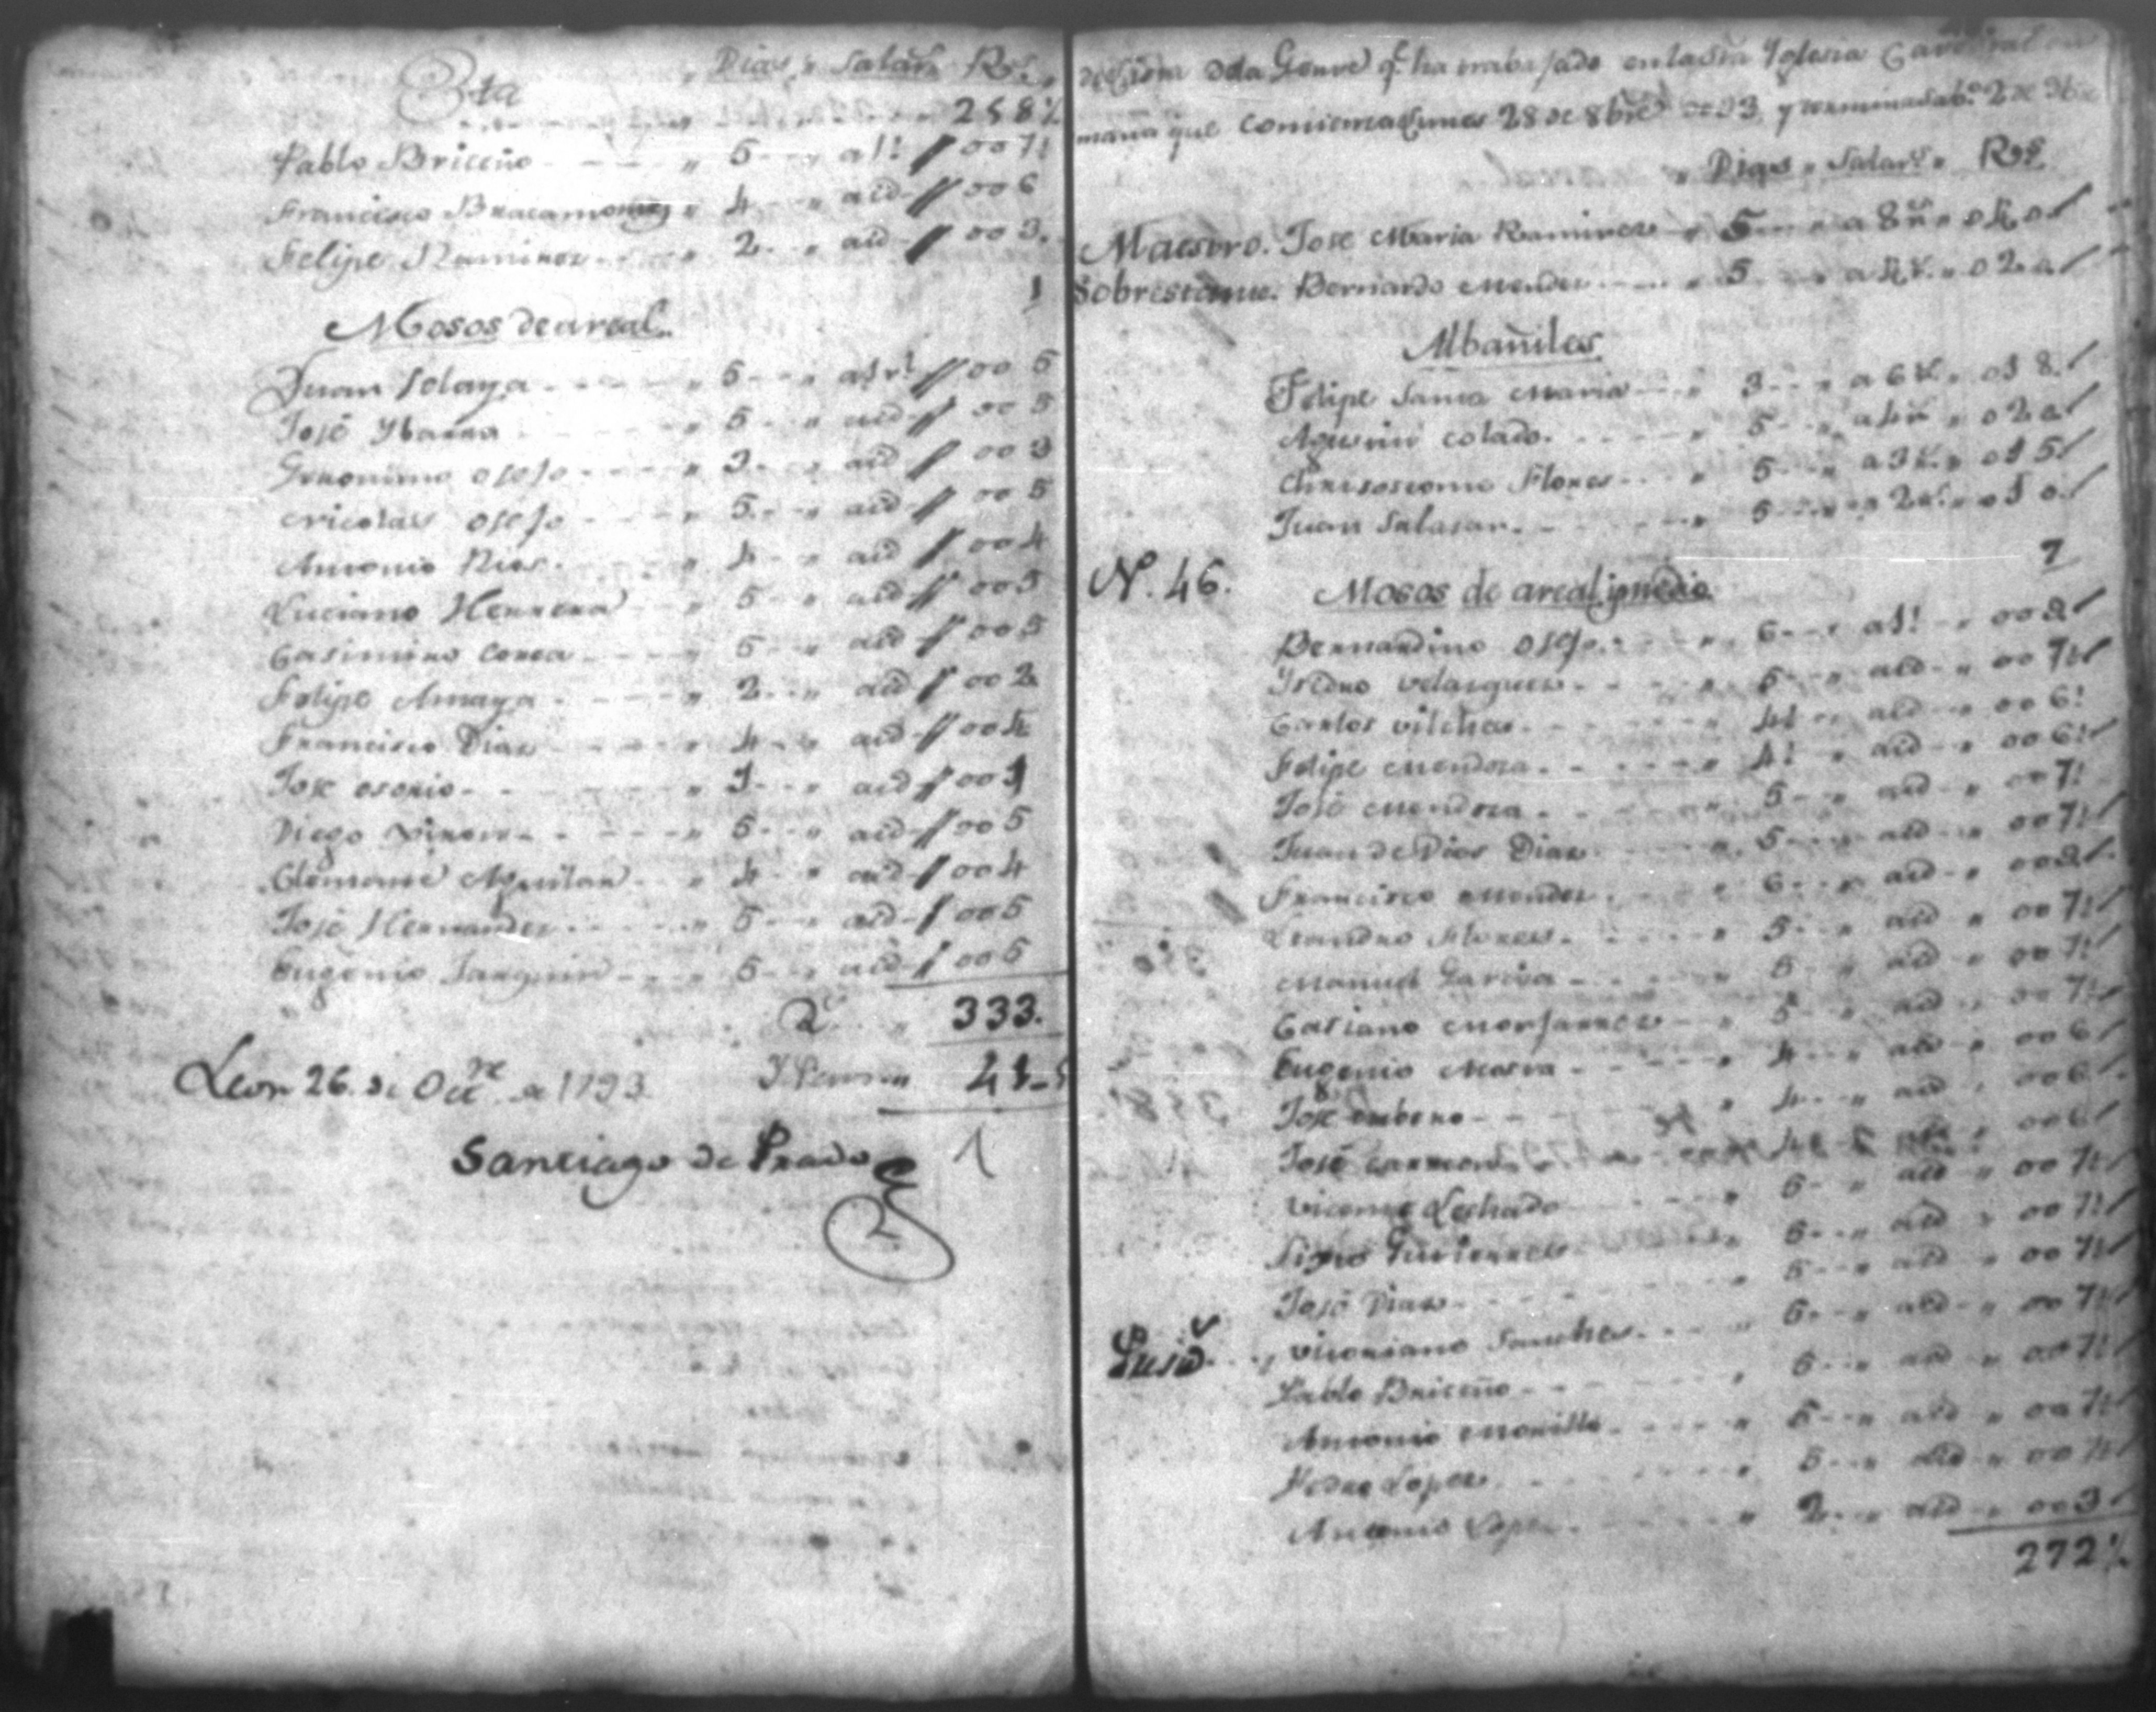 Dias, Salars Rs.
258½
Pablo Briceño 5 a 1! 007!
Francisco Bracamontes 4 a id 006
Felipe Ramires 2 a id 003
Mosos de a real
Juan Solaya 5 a 1 rl 005
José Ybarra 5 a id 005
Geronimo osejo 3 a id 003
Nicolas osejo 5 a id 005
Antonio Rios 4 a id 004
Luciano Herrera 5 a id 005
Casimiro Corea 5 a id 005
Felipe Amaya 2 a id 002
Francisco Dias 4 a id 004
Jose osorio 1 a id 001
Diego 5 a id 005
Clemente Aguilar 4 a id 004
José Hernandes 5 a id 005
Eugenio 5 a id 005
333.
Leon 26. de Octre de 1793. 41-5
Santiago de Prado
de la Gente q. ha trabajado en la Sta Yglesia Catedral
mana que comiensa Lunes 28 de 8bre de 93 y termina Sabo. 2 de 9bre
Dias Salars Rs.
Maestro. Jose Maria Ramires 5 a 8 rs 040
Sobrestante. Bernardo Mendes 5 a 4 rs. 020
Albañiles
Felipe Santa Maria 3 a 6 rs. 018
Agustin colado. 5 a 4 rs 020
Chrisostomo Flores 5 a 3 rs. 015
Juan Salasar. 5 a 2 rs. 010
N. 46. Mosos de a real i medio
Bernardino osejo. 6 a 1! 009
Ysidro Velasques 5 a id 007!
Carlos vilches 4! a id 006!
Felipe Mendosa 4! a id 006!
José Mendosa 5 a id 007!
Juan de Dios Dias 5 a id 007!
Francisco Mendes 6 a id 009
Leandro Flores 5 a id 007!
Manuel Garcia 5 a id 007!
Casiano Monjarres 5 a id 007!
Eugenio 4 a id 006
José 4 a id 006
José 4 006
Vicente Lechado 5 a id 007!
Gutierres 5 a id 007!
José Dias 5 a id 007!
Victoriano Sanches 5 a id 007!
Pablo Briceño 5 a id 007!
Antonio Morillo 5 a id 007!
Pedro Lopes 5 a id 007!
Antonio Lopes 2 a id 003
272½